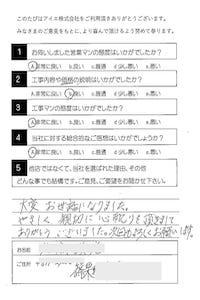 このたびはアイエ株式会社をご利用頂きありがとうございます。
みなさまのご意見をもとに、より喜んで頂けるよう努めて参ります。
1 お伺いしました営業マンの態度はいかがでしたか?
A 非常に良い b.良い c.普通 d.少し悪い e.悪い
2 工事内容や価格の説明はいかがでしたか?
A.非常に良い b.良い c.普通 d.少し悪い e.悪い
3 工事人の態度はいかがでしたか?
A 非常に良い b.良い c.普通 d.少し悪い e.悪い
4 当社に対する総合的なご感想はいかがでしょうか?
A 非常に良い b.良い c.普通 d.少し悪い e.悪い
5 他店ではなくて、当社を選ばれた理由、その他
どんな事でも結構です。ご意見、ご要望をお聞かせ下さい。
大変 お世話になりました。
やさしく 親切に 心配りを頂きまして
ありがとうございました。次回もよろしくお願いします。
お名前
ご住所
様